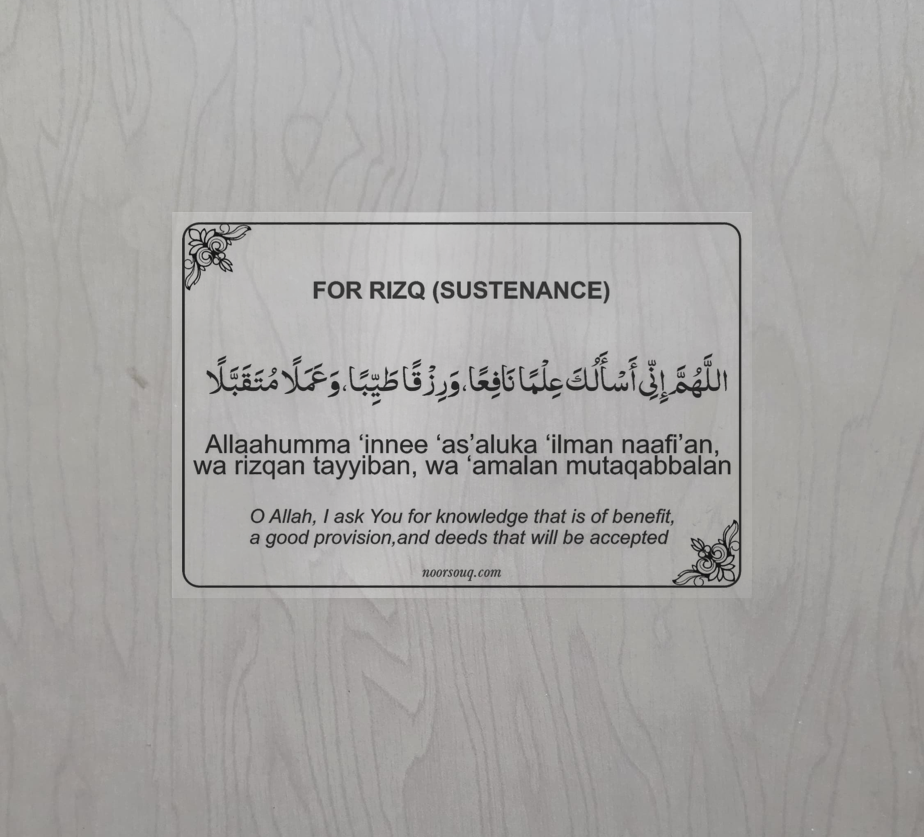 FOR RIZQ (SUSTENANCE)
اللَّهُمَّ إِنِّي أَسْأَلُكَ عِلْمًا نَافِعًا، وَرِزْقًا طَيِّبًا، وَعَمَلًا مُتَقَبَّلًا
Allaahumma ‘innee ‘as’aluka ‘ilman naafi’an,
wa rizqan tayyiban, wa ‘amalan mutaqabbalan
O Allah, I ask You for knowledge that is of benefit,
a good provision,and deeds that will be accepted
noorsouq.com